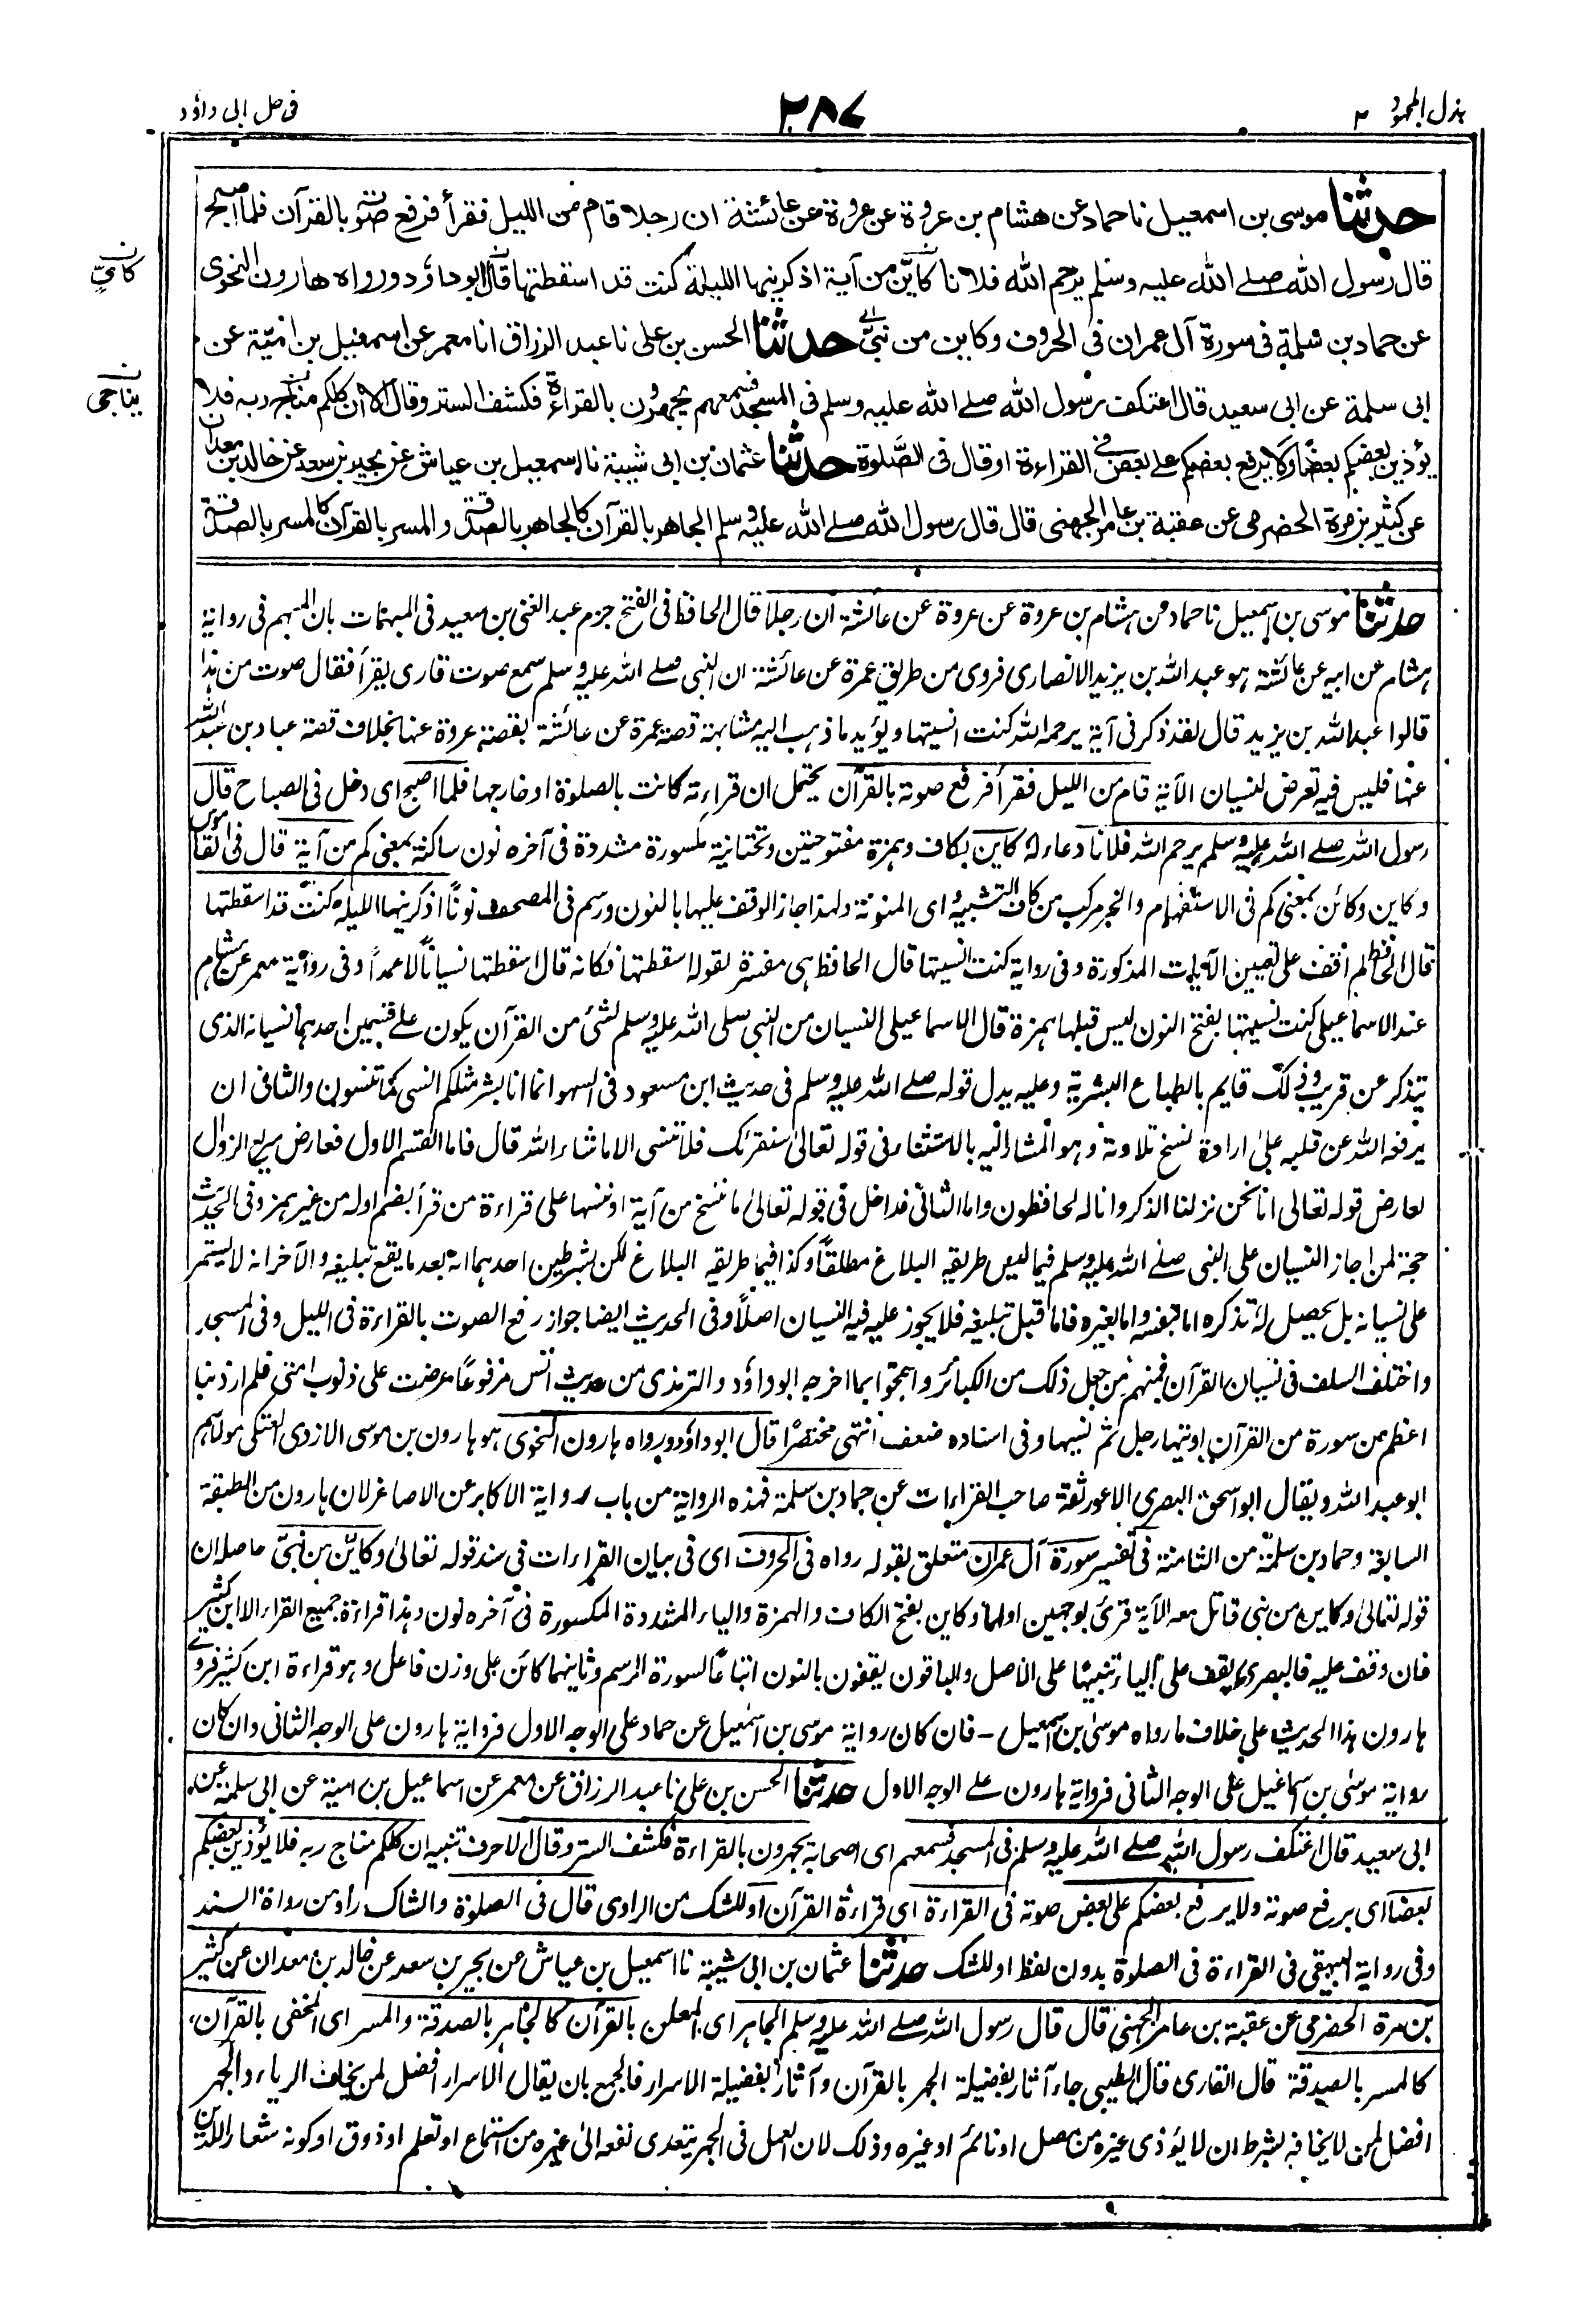 بذل المجهود ۲
۲۸۷
فى حل ابى داؤد
حدثنا موسى بن اسمعيل نا حماد عن هشام بن عروة عن عروة عن عائشة ان رجلا قام من الليل فقرأ فرفع صوته بالقرآن فلما اصبح
قال رسول الله صلے الله عليه وسلم يرحم الله فلانا كايّن من آية اذكرنيها الليلة كنت قد اسقطتها قال ابوداؤد ورواه هارون النحوى
عن حماد بن سلمة فى سورة آل عمران فى الحروف وكاين من نبىّ حدثنا الحسن بن على نا عبد الرزاق انا معمر عن اسمعيل بن اميّة عن
ابى سلمة عن ابى سعيد قال اعتكف رسول الله صلے الله عليه وسلم فى المسجد فسمعهم يجهرون بالقراءة فكشف الستر وقال الا ان كلكم مناج ربه فلا
يؤذين بعضكم بعضا ولا يرفع بعضكم على بعض فى القراءة او قال فى الصّلوة حدثنا عثمان بن ابى شيبة نا اسمعيل بن عياش عن بحير بن سعد عن خالد بن معدان
عن كثير بن مرة الحضرمى عن عقبة بن عامر الجهنى قال قال رسول الله صلے الله عليه وسلم الجاهر بالقرآن كالجاهر بالصدقة والمسر بالقرآن كالمسر بالصدقة
كائ ن
يناجى ن
حدثنا موسى بن اسمعيل نا حماد عن هشام بن عروة عن عروة عن عائشة ان رجلا قال الحافظ فى الفتح جزم عبد الغنى بن سعيد فى المبهمات بان المبهم فى رواية
هشام عن ابيه عن عائشة هو عبد الله بن يزيد الانصارى فروى من طريق عمرة عن عائشة ان النبى صلے الله عليه وسلم سمع صوت قارى يقرأ فقال صوت من هذا
قالوا عبد الله بن يزيد قال لقد ذكرنى آية يرحمه الله كنت انسيتها ويؤيد ما ذهب اليه مشابهة قصة عمرة عن عائشة بقصة عروة عنها بخلاف قصة عباد بن عبد الله
عنها فليس فيه تعرض لنسيان الآية قام من الليل فقرأ فرفع صوته بالقرآن يحتمل ان قراءته كانت بالصلوة او خارجها فلما اصبح اى دخل فى الصباح قال
رسول الله صلے الله عليه وسلم يرحم الله فلانا دعاء له كاين بكاف وهمزة مفتوحتين وتحتانية مكسورة مشددة فى آخره نون ساكنة بمعنى كم من آية قال فى القاموس
وكاين وكائن بمعنى كم فى الاستفهام والخبر مركب من كاف التشبيه واى المنونة ولهذا جاز الوقف عليها بالنون ورسم فى المصحف نونًا اذكرنيها الليلة كنت قد اسقطتها
قال الحافظ لم اقف على تعيين الآيات المذكورة وفى رواية كنت انسيتها قال الحافظ هى مفسرة لقوله اسقطتها فكانه قال اسقطتها نسيانًا لا عمداً وفى رواية معمر عن هشام
عند الاسماعيلى كنت نسيتها بفتح النون ليس قبلها همزة قال الاسماعيلى النسيان من النبى صلى الله عليه وسلم لشئ من القرآن يكون على قسمين احدهما نسيانه الذى
يتذكر عن قريب وذلك قايم بالطباع البشرية وعليه يدل قوله صلے الله عليه وسلم فى حديث ابن مسعود فى السهو انما انا بشر مثلكم انسى كما تنسون والثانى ان
يرفعه الله عن قلبه على ارادة نسخ تلاوته وهو المشار اليه بالاستثناء فى قوله تعالى سنقرئك فلا تنسى الا ما شاء الله قال فاما القسم الاول فعارض سريع الزوال
لعارض قوله تعالى انا نحن نزلنا الذكر وانا له لحافظون واما الثانى فداخل فى قوله تعالى ما ننسخ من آية او ننسها على قراءة من قرأ بضم اوله من غير همز وفى الحديث
حجة لمن اجاز النسيان على النبى صلے الله عليه وسلم فيما ليس طريقه البلاغ مطلقًا وكذا فيما طريقه البلاغ لكن بشرطين احدهما انه بعد ما يقع تبليغه والآخر انه لا يستمر
على نسيانه بل يحصيل له تذكره اما بنفسه واما بغيره فاما قبل تبليغه فلا يجوز عليه فيه النسيان اصلاً وفى الحديث ايضا جواز رفع الصوت بالقراءة فى الليل وفى المسجد
واختلف السلف فى نسيان القرآن فمنهم من جعل ذلك من الكبائر واحتجوا بما اخرجه ابوداؤد والترمذى من حديث انس مرفوعًا عرضت على ذنوب امتى فلم ار ذنبا
اعظم من سورة من القرآن اوتيها رجل ثم نسيها وفى اسناده ضعف انتهى مختصرًا قال ابوداؤد ورواه هارون النحوى هو هارون بن موسى الازدى العتكى مولاهم
ابو عبد الله ويقال ابو اسحق البصرى الاعور ثقة صاحب القراءات عن حماد بن سلمة فهذه الرواية من باب رواية الاكابر عن الاصاغر لان هارون من الطبقة
السابعة وحماد بن سلمة من الثامنة فى تفسير سورة آل عمران متعلق بقوله رواه فى الحروف اى فى بيان القراءات فى سند قوله تعالى وكايّن من نبىّ حاصله ان
قوله تعالى وكاين من نبى قاتل معه الآية قرئ بوجهين اولهما وكاين بفتح الكاف والهمزة والياء المشددة المكسورة فى آخره نون وهذا قراءة جميع القراء الا ابن كثير
فان وقف عليه فالبصرى يقف على الياء تنبيهًا على الاصل والباقون يقفون بالنون اتباعًا لصورة الرسم وثانيهما كائن على وزن فاعل وهو قراءة ابن كثير فروے
هارون هذا الحديث على خلاف ما رواه موسى بن اسمعيل - فان كان رواية موسى بن اسمعيل عن حماد على الوجه الاول فرواية هارون على الوجه الثانى وان كان
رواية موسى بن اسماعيل على الوجه الثانى فرواية هارون على الوجه الاول حدثنا الحسن بن على نا عبد الرزاق عن معمر عن اسماعيل بن امية عن ابى سلمة عن
ابى سعيد قال اعتكف رسول الله صلے الله عليه وسلم فى المسجد فسمعهم اى اصحابه يجهرون بالقراءة فكشف الستر وقال الا حرف تنبيه ان كلكم مناج ربه فلا يؤذين بعضكم
بعضا اى برفع صوته ولا يرفع بعضكم على بعض صوته فى القراءة اى قراءة القرآن او للشك من الراوى قال فى الصلوة والشاك راو من رواة السند
وفى رواية البيهقى فى القراءة فى الصلوة بدون لفظ او للشك حدثنا عثمان بن ابى شيبة نا اسمعيل بن عياش عن بحير بن سعد عن خالد بن معدان عن كثير
بن مرة الحضرمى عن عقبة بن عامر الجهنى قال قال رسول الله صلے الله عليه وسلم الجاهر اى المعلن بالقرآن كالجاهر بالصدقة والمسر اى المخفى بالقرآن
كالمسر بالصدقة قال القارى قال الطيبى جاء آثار بفضيلة الجهر بالقرآن وآثار بفضيلة الاسرار فالجمع بان يقال الاسرار افضل لمن يخاف الرياء والجهر
افضل لمن لا يخافه بشرط ان لا يؤذى غيره من مصل او نائم او غيره وذلك لان العمل فى الجهر يتعدى نفعه الى غيره من استماع او تعلم او ذوق او كونه شعار اللدين